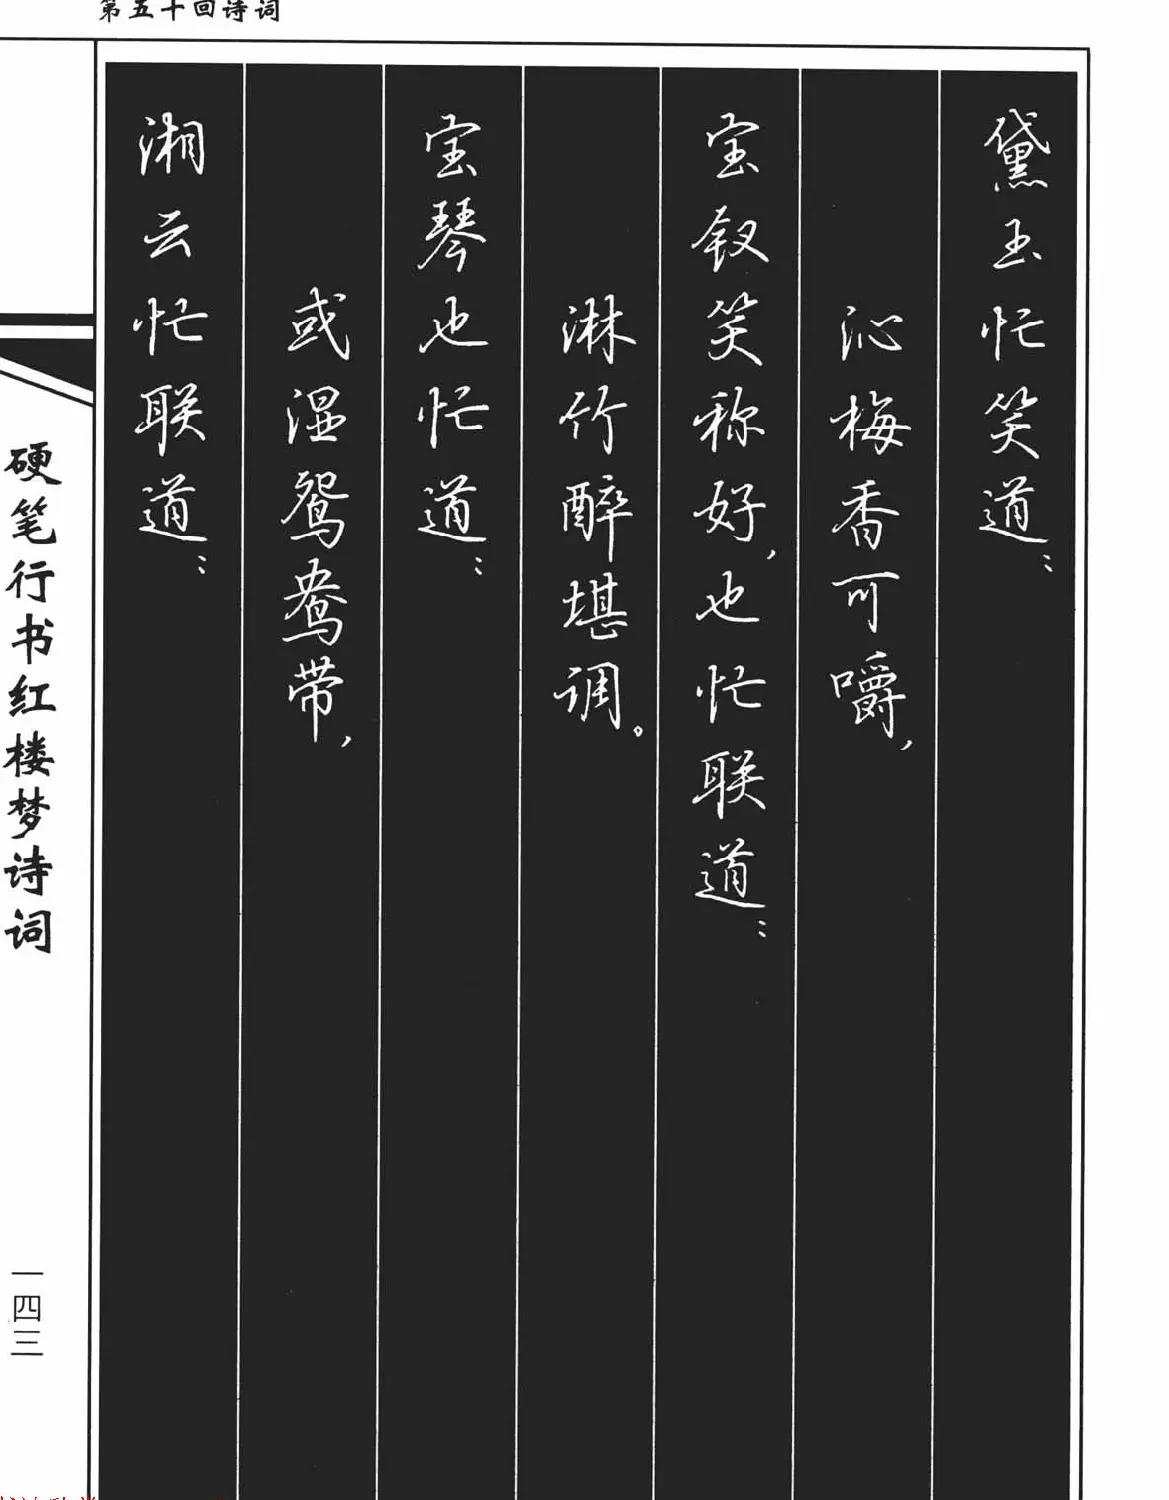 第五十回诗词
黛玉忙笑道：
沁梅香可嚼，
宝钗笑称好，也忙联道：
淋竹醉堪调。
宝琴也忙道：
或湿鸳鸯带，
湘云忙联道：
硬笔行书红楼梦诗词
一四三